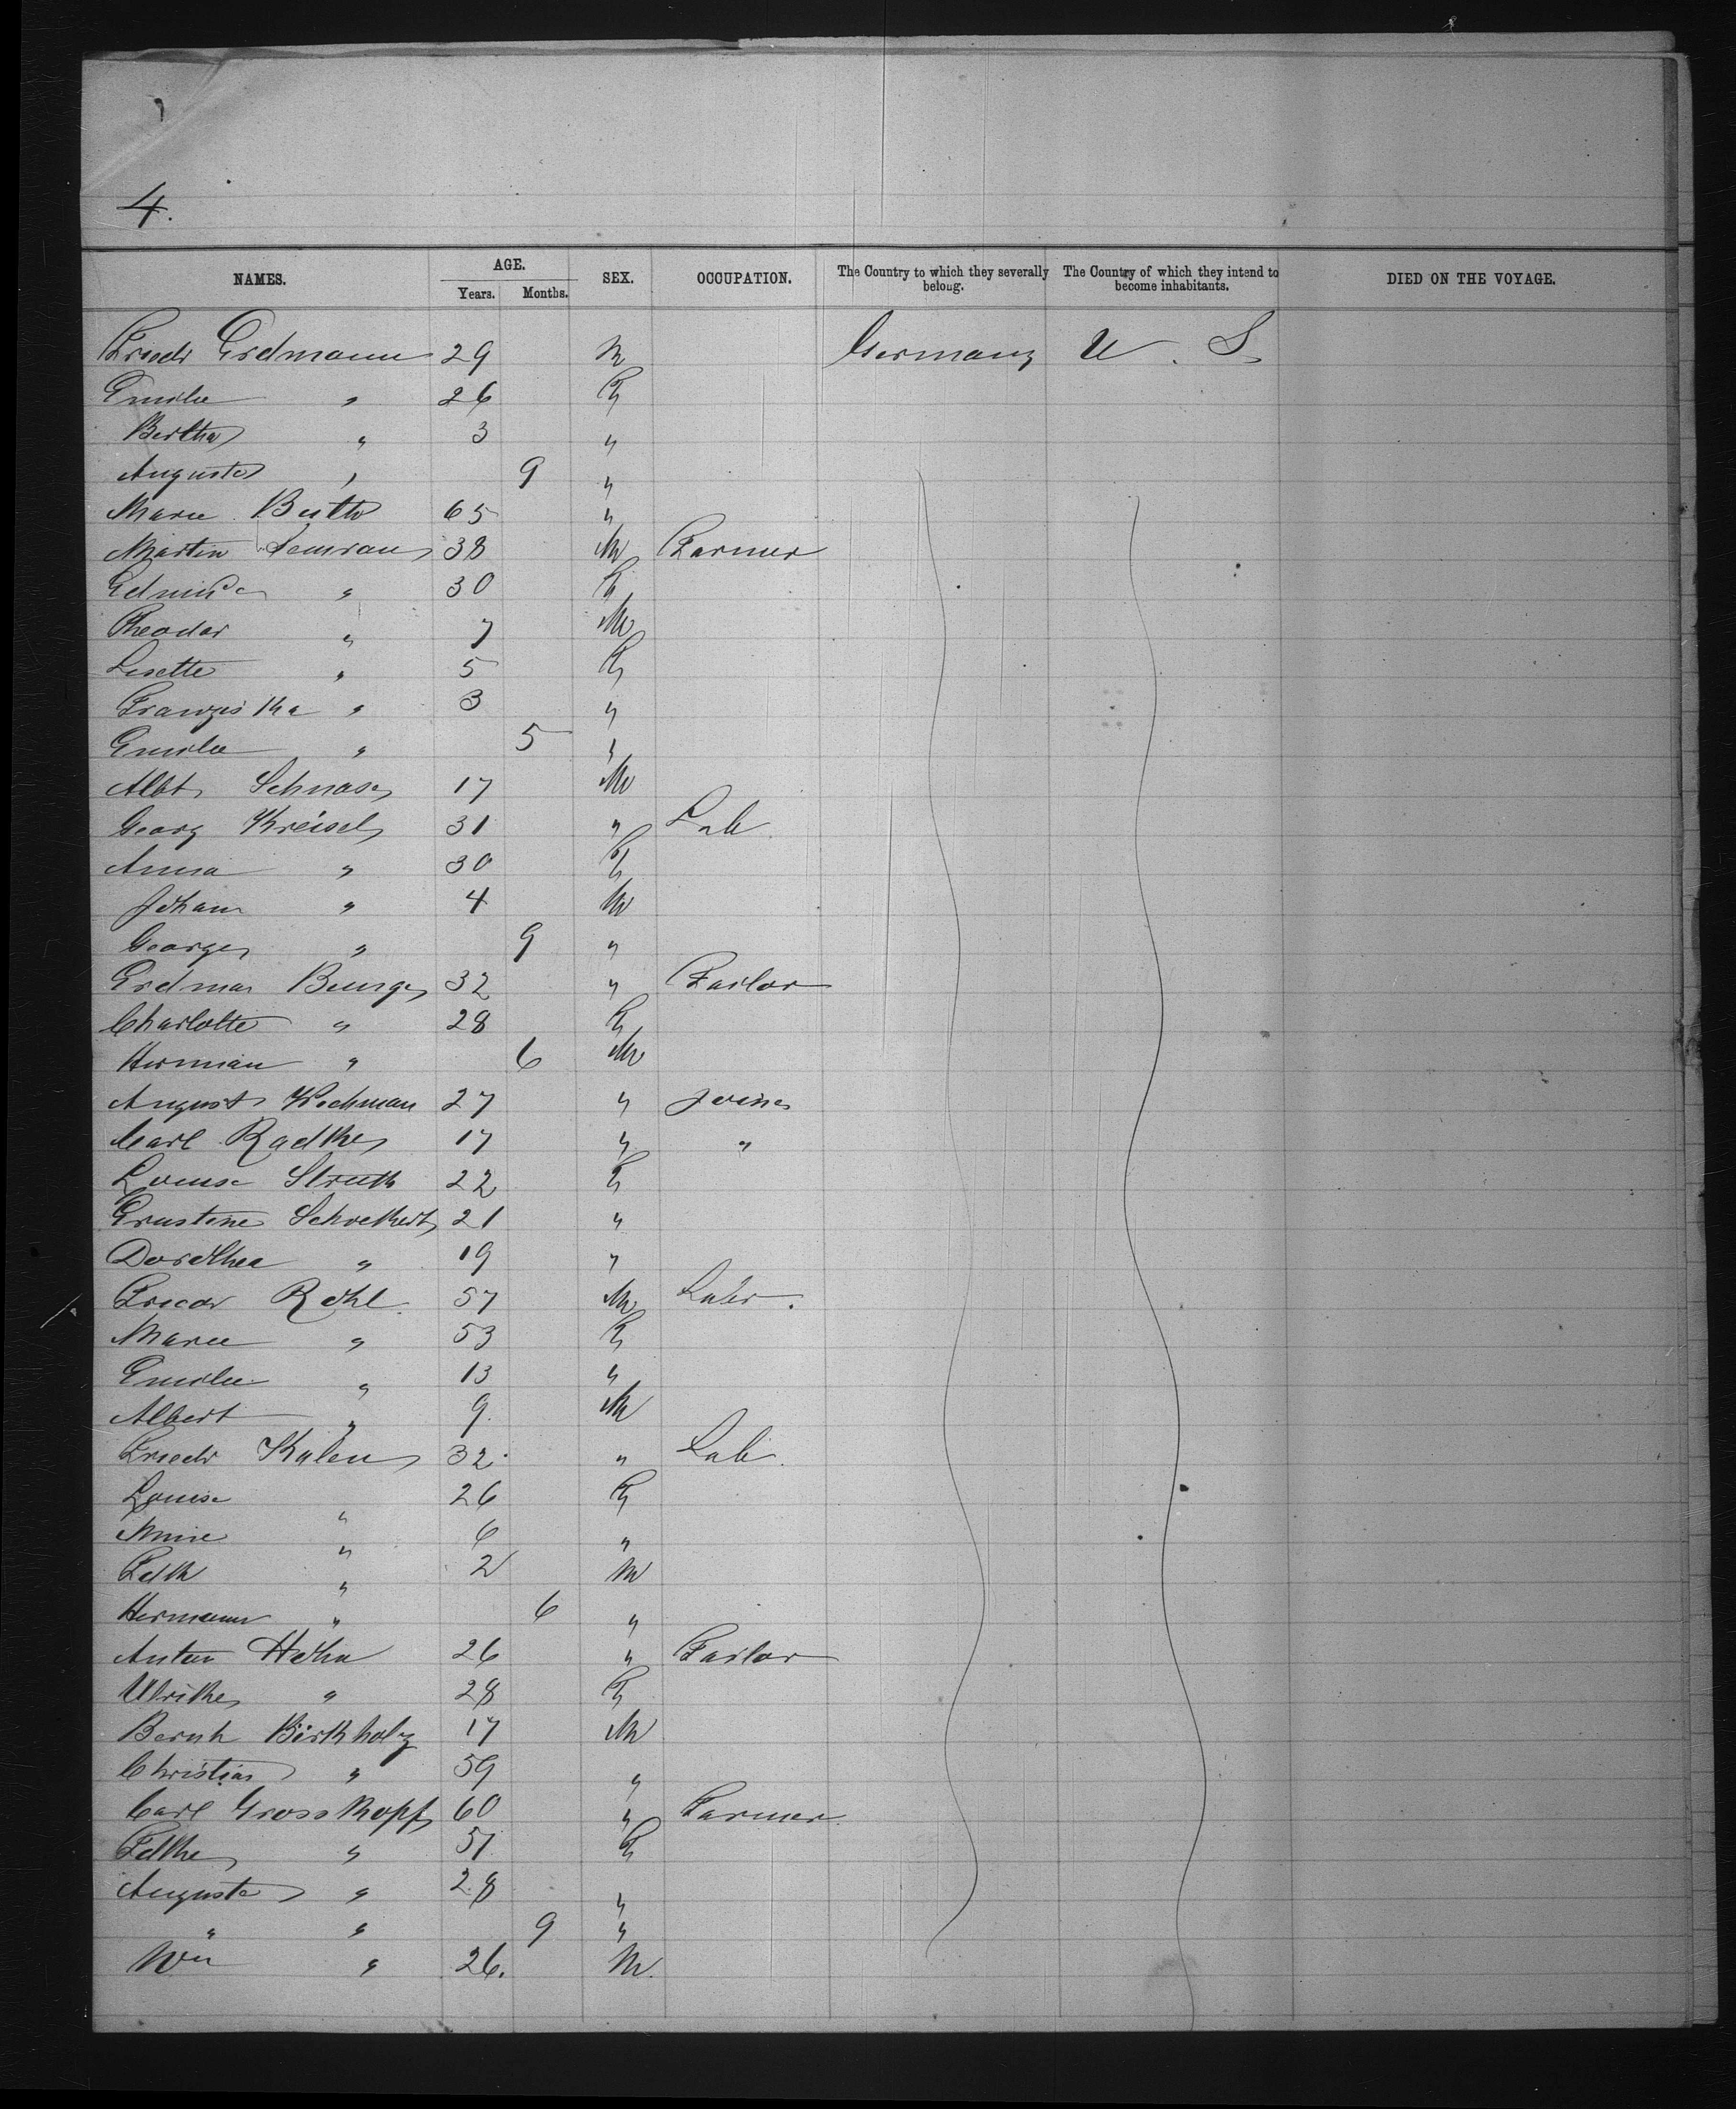 4.
NAMES. AGE. SEX. OCCUPATION. The Country to which they severally belong. The Country of which they intend to become inhabitants. DIED ON THE VOYAGE.
Years. Months.
Friedr Erdmann 29 M Germany U. S.
Emilie " 26 F
Bertha " 3 "
Auguste " 9 "
Marie Buth 65 "
Martin 38 M Farmer
" 30 F
Theodor " 7 M
Lisette " 5 F
Franziska " 3 "
Emilie " 5 "
Albt 17 M
Georg Kreisel 31 " Lab.
Anna " 30 F
Johann " 4 M
George " 9 "
Erdman 32 " Tailor
Charlotte " 28 F
Herman " 6 M
August 27 " Joiner
Carl Radtke 17 " "
Louise Struth 22 F
Ernstine 21 "
Dorothea " 19 "
Friedr Rohl 57 M Labr.
Marie " 53 F
Emilie " 13 "
Albert " 9 M
Friedr 32 " Lab.
Louise " 26 F
Mine " 6 "
" 2 M
Hermann " 6 "
Anton Hohn 26 " Tailor
Ulrike " 28 F
Bernh Birkholz 17 M
Christian " 59 "
Carl Grosskopf 60 " Farmer
" 57 F
Auguste " 28 "
" " 9 "
Wm " 26. M.